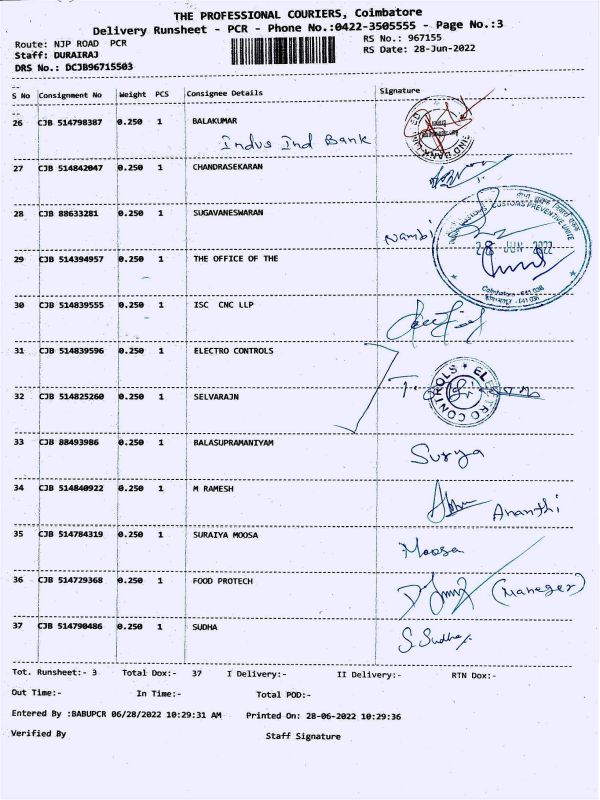 THE PROFESSIONAL COURIERS, Coimbatore
Delivery Runsheet - PCR - Phone No.:0422-3505555 - Page No.:3
Route: NJP ROAD PCR
RS No.: 967155
Staff: DURAIRAJ
RS Date: 28-Jun-2022
DRS No.: DCJB96715503
S No Consignment No Weight PCS Consignee Details Signature
26 CJB 514798387 0.250 1 BALAKUMAR
Indus Ind Bank
27 CJB 514842047 0.250 1 CHANDRASEKARAN
28 CJB 88633281 0.250 1 SUGAVANESWARAN
Nambi
CUSTOMS PREVENTIVE UNIT
28 JUN 2022
29 CJB 514394957 0.250 1 THE OFFICE OF THE
Coimbatore - 641 018
30 CJB 514839555 0.250 1 ISC CNC LLP
31 CJB 514839596 0.250 1 ELECTRO CONTROLS
ELECTRO CONTROLS
32 CJB 514825260 0.250 1 SELVARAJN
33 CJB 88493986 0.250 1 BALASUPRAMANIYAM
Surya
34 CJB 514840922 0.250 1 M RAMESH
Ananthi
35 CJB 514784319 0.250 1 SURAIYA MOOSA
Moosa
36 CJB 514729368 0.250 1 FOOD PROTECH
(Maneger)
37 CJB 514790486 0.250 1 SUDHA
S. Sudha
Tot. Runsheet:- 3 Total Dox:- 37 I Delivery:- II Delivery:- RTN Dox:-
Out Time:- In Time:- Total POD:-
Entered By :BABUPCR 06/28/2022 10:29:31 AM Printed On: 28-06-2022 10:29:36
Verified By Staff Signature